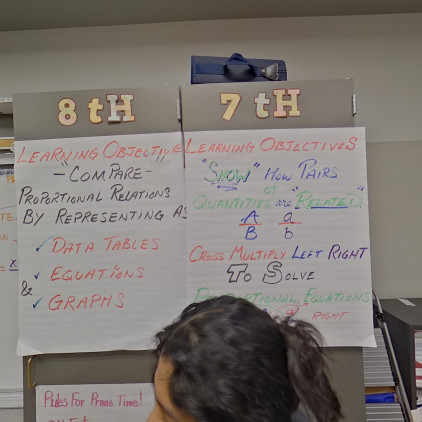 8 tH
LEARNING OBJECTIVE
-"COMPARE"-
PROPORTIONAL RELATIONS
BY REPRESENTING AS
✓ DATA TABLES
✓ EQUATIONS
& ✓ GRAPHS
7 tH
LEARNING OBJECTIVES
"SHOW" HOW PAIRS
of
QUANTITIES are "RELATED"
A a
B b
CROSS MULTIPLY LEFT RIGHT
TO SOLVE
PROPORTIONAL EQUATIONS
RIGHT
Rules For Prime Time!